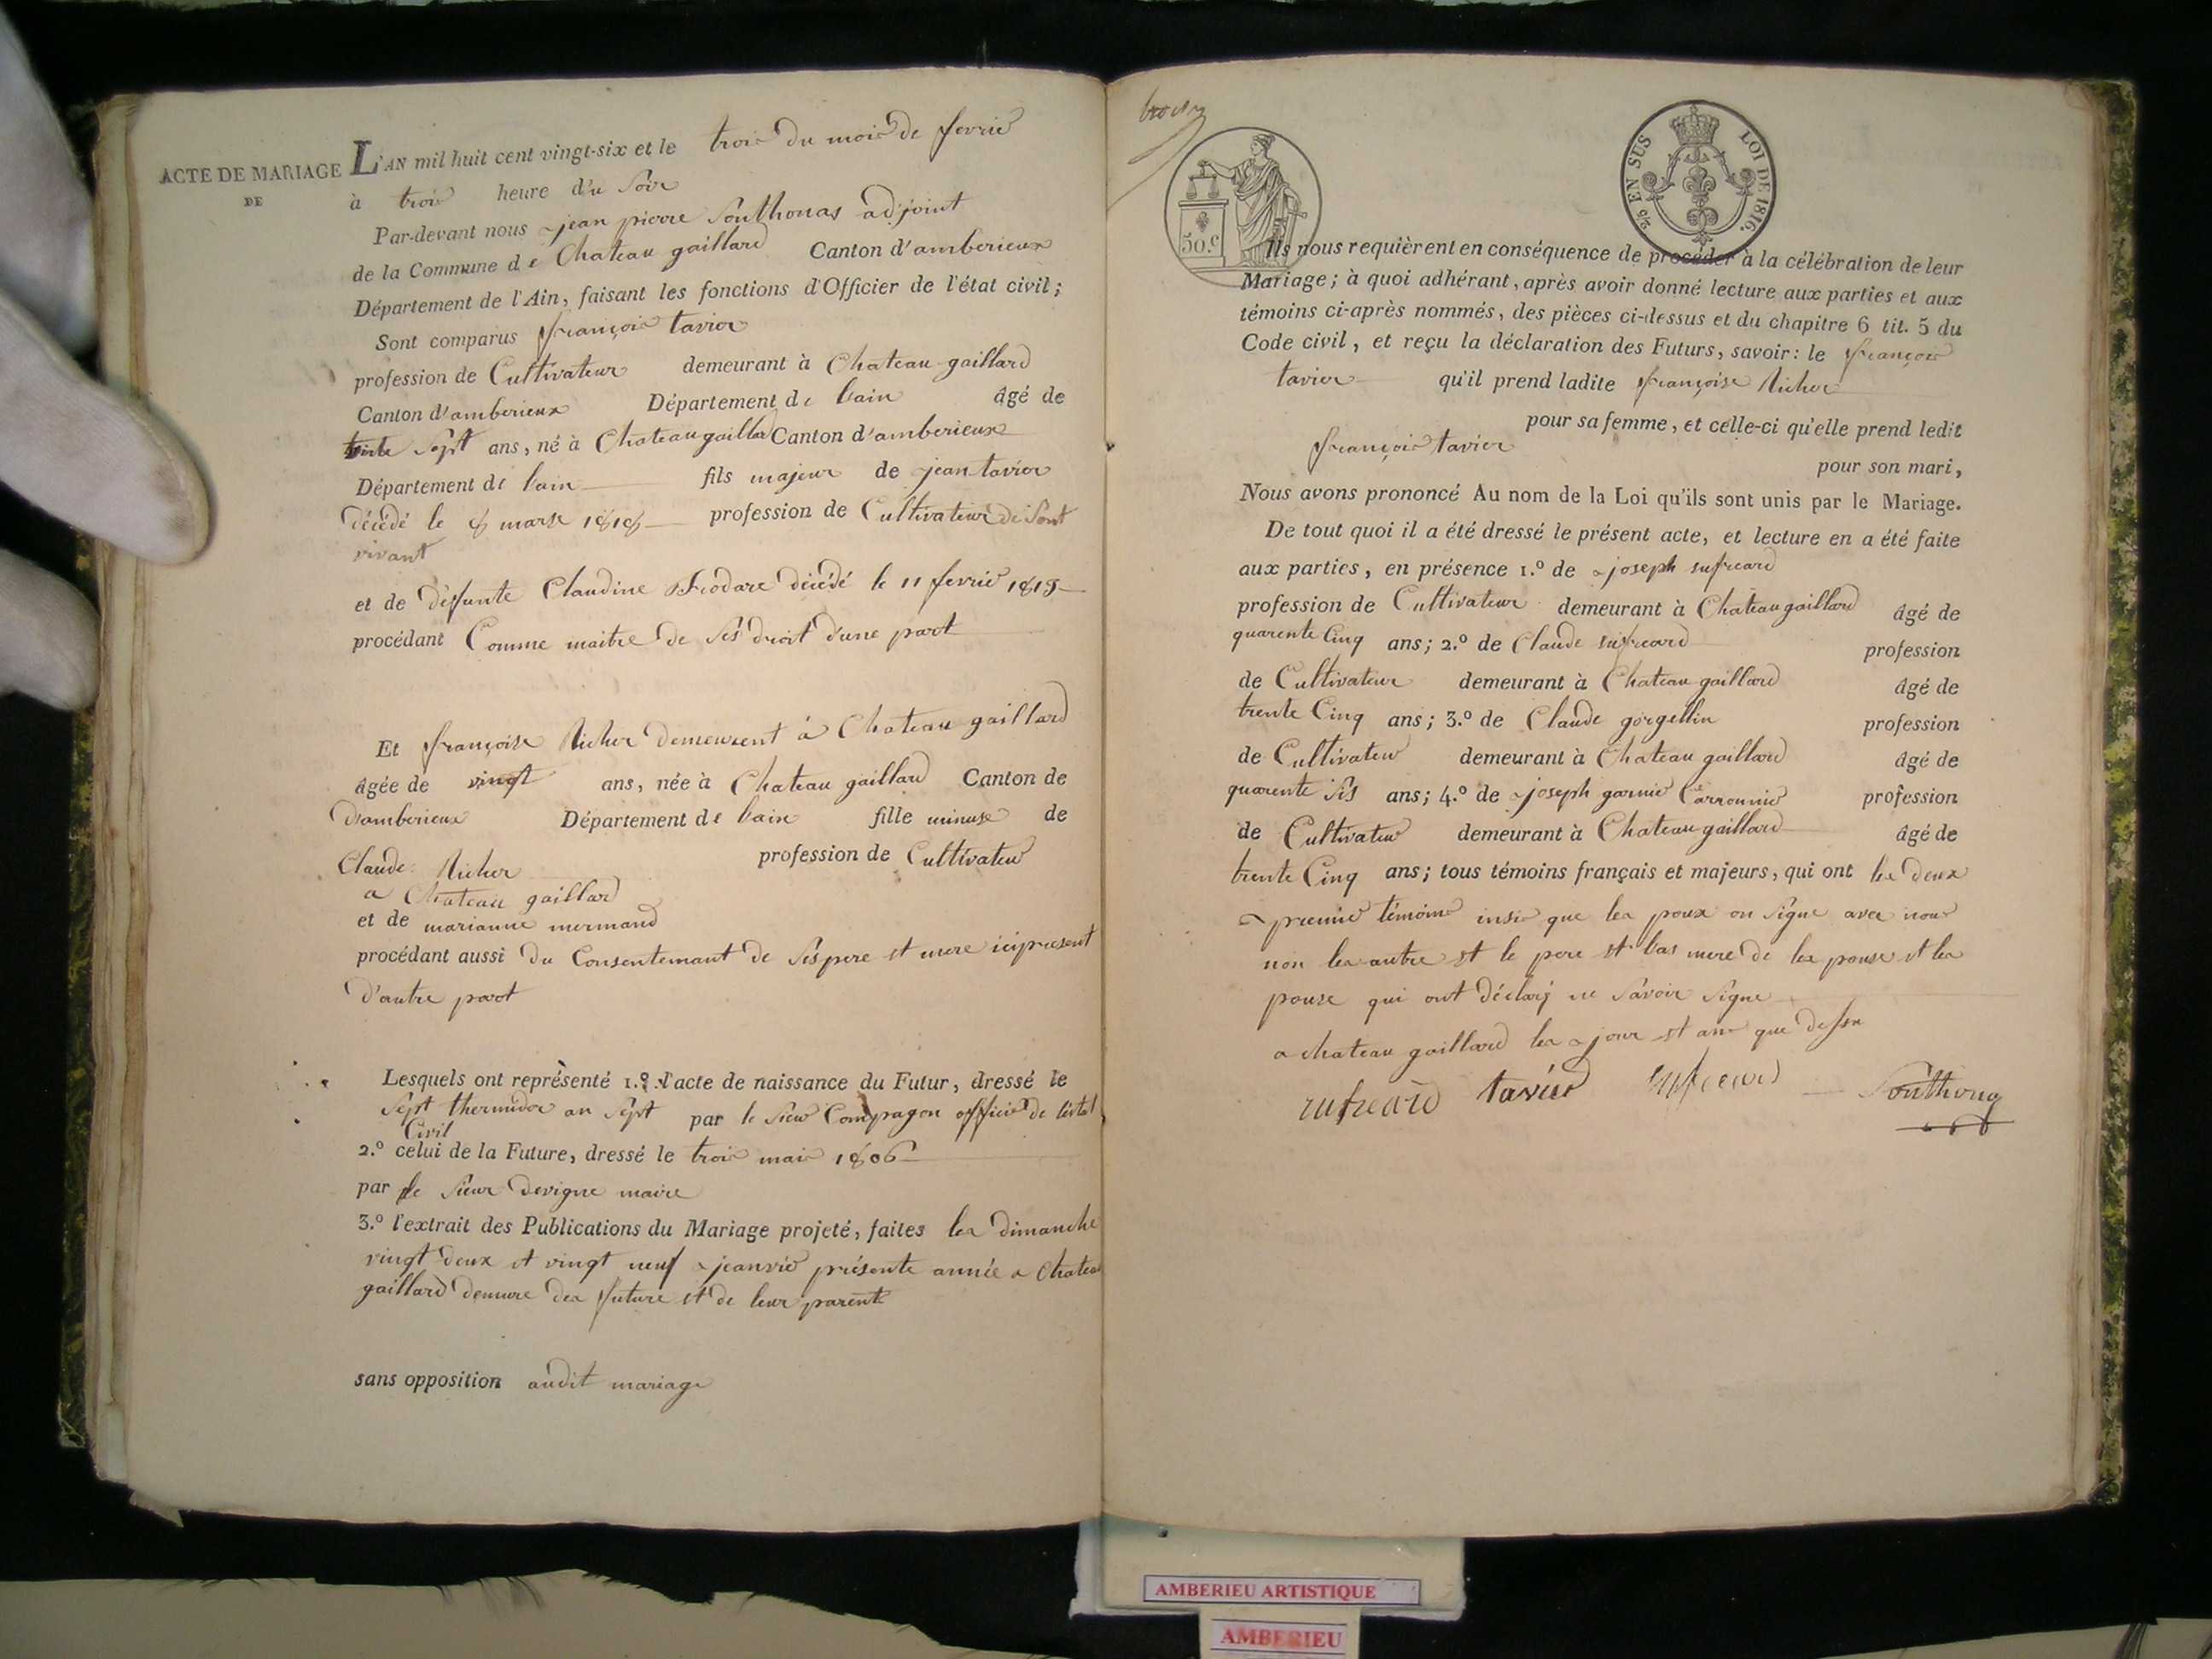 ACTE DE MARIAGE
DE
L'AN mil huit cent vingt-six et le trois du mois de fevrie
à trois heure d'u Soir
Par-devant nous jean pierre Southonas adjoint
de la Commune de Chateau gaillard Canton d'amberieux
Département de l'Ain, faisant les fonctions d'Officier de l'état civil;
Sont comparus françois tavier
profession de Cultivateur demeurant à Chateau gaillard
Canton d'amberieux Département de lain âgé de
sept ans, né à Chateau gaillar Canton d'amberieux
Département de lain fils majeur de jean tavier
décédé le 8 marse 1818 profession de Cultivateur de Sont
vivant
et de defunte Claudine décédé le 11 fevrie
procédant Comme maitre de ses droit d'une part
Et françoise demeurent à Chateau gaillard
âgée de vingt ans, née à Chateau gaillard Canton de
d'amberieux Département de lain fille minuse de
Claude profession de Cultivateur
a Chateau gaillar
et de marianne mermand
procédant aussi du Consentemant de Ses pere et mere ici present
d'autre part
Lesquels ont représenté 1.º l'acte de naissance du Futur, dressé le
Sept thermidor an Sept par le Sieur Compagon officie de letat
Civil
2.º celui de la Future, dressé le trois mai 1806
par le Sieur devigne maire
3.º l'extrait des Publications du Mariage projeté, faites les dimanche
vingt deux et vingt neuf jeanvie présente année a Chateau
gaillard demure des future et de leur parent
sans opposition audit mariage
50.c
2/5 EN SUS LOI DE 1816.
Ils nous requièrent en conséquence de procéder à la célébration de leur
Mariage; à quoi adhérant, après avoir donné lecture aux parties et aux
témoins ci-après nommés, des pièces ci-dessus et du chapitre 6 tit. 5 du
Code civil, et reçu la déclaration des Futurs, savoir: le françois
tavier qu'il prend ladite françoise
pour sa femme, et celle-ci qu'elle prend ledit
françois tavier
pour son mari,
Nous avons prononcé Au nom de la Loi qu'ils sont unis par le Mariage.
De tout quoi il a été dressé le présent acte, et lecture en a été faite
aux parties, en présence 1.º de joseph
profession de Cultivateur demeurant à Chateau gaillard âgé de
quarente Cinq ans; 2.º de Claude profession
de Cultivateur demeurant à Chateau gaillard âgé de
trente Cinq ans; 3.º de Claude gorgellin profession
de Cultivateur demeurant à Chateau gaillard âgé de
quarente sis ans; 4.º de joseph garnie profession
de Cultivateur demeurant à Chateau gaillard âgé de
trente Cinq ans; tous témoins français et majeurs, qui ont les deux
premie témoins insi que les poux on signe avec nous
non les autre et le pere et las mere de les pouse et les
pouse qui ont déclarj ne savoir signe
a chateau gaillard les jour et ans que dessu
tavier
AMBERIEU ARTISTIQUE
AMBERIEU